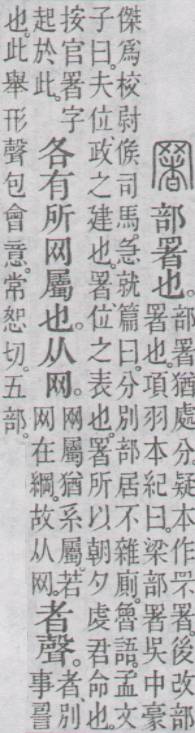 部署也。
部署猶處分疑本作罘署後改部
署也。項羽本紀曰。梁部署吳中豪
傑爲校尉候司馬。急就篇曰。分別部居不雜廁。魯語。孟文
子曰。夫位政之建也。署位之表也。署所以朝夕虔君命也。
按官署字
起於此。
各有所网屬也。从网。
网屬猶系屬。若
网在綱。故从网。
者聲。
者、別
事䛐
也。此舉形聲包會意。常恕切。五部。